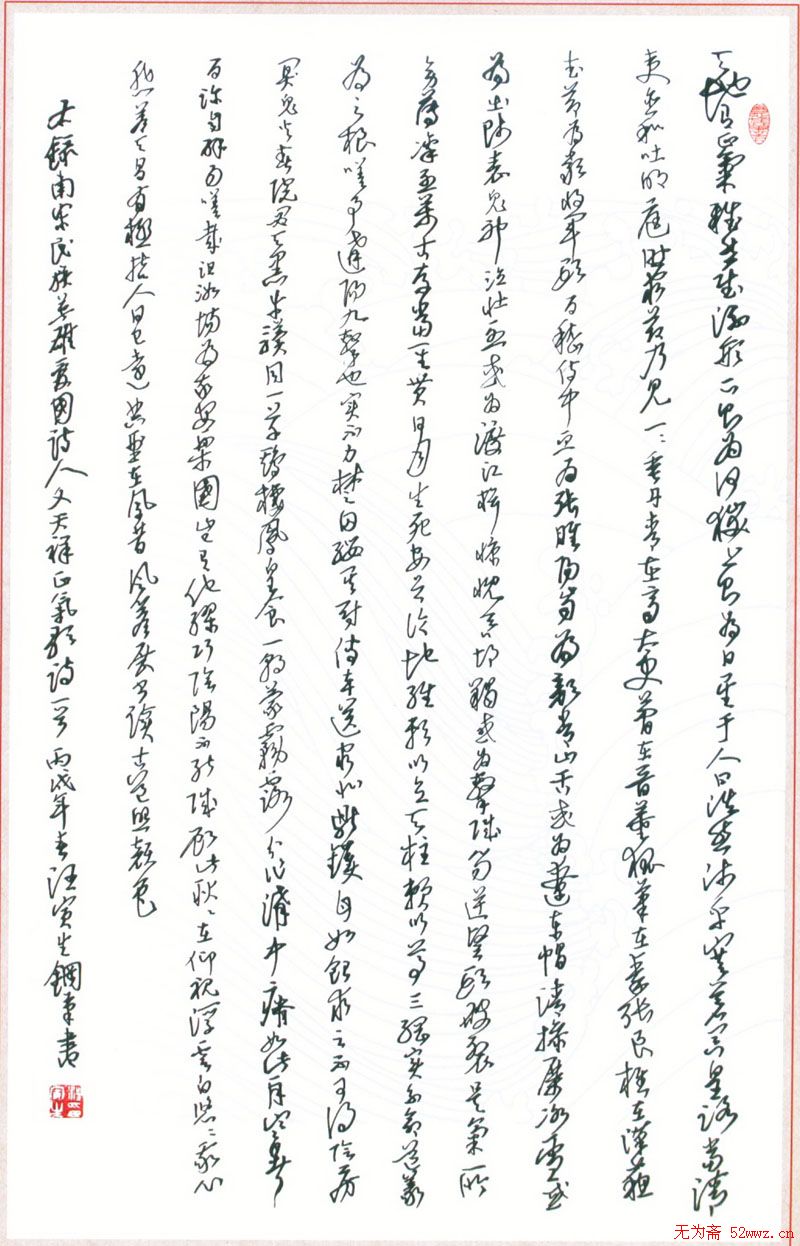 天地有正氣雜然賦流形下則為河嶽上則為日星于人曰浩然沛乎塞蒼冥皇路當清
夷含和吐明庭時窮節乃見一一垂丹青在齊太史簡在晉董狐筆在秦張良椎在漢蘇
武節為嚴將軍頭為嵇侍中血為張睢陽齒為顏常山舌或為遼東帽清操厲冰雪或
為出師表鬼神泣壯烈或為渡江楫慷慨吞胡羯或為擊賊笏逆豎頭破裂是氣所
旁薄凜烈萬古存當其貫日月生死安足論地維賴以立天柱賴以尊三綱實系命道義
為之根嗟予遘陽九隸也實不力楚囚纓其冠傳車送窮北鼎鑊甘如飴求之不可得陰房
闃鬼火春院閟天黑牛驥同一皂雞棲鳳凰食一朝蒙霧露分作溝中瘠如此再寒暑
百沴自辟易嗟哉沮洳場為我安樂國豈有他繆巧陰陽不能賊顧此耿耿在仰視浮雲白悠悠我心
悲蒼天曷有極哲人日已遠典型在夙昔風簷展書讀古道照顏色
右錄南宋民族英雄愛國詩人文天祥正氣歌詩一首丙戌年春汪寅生鋼筆書
无为斋 52wwz.cn